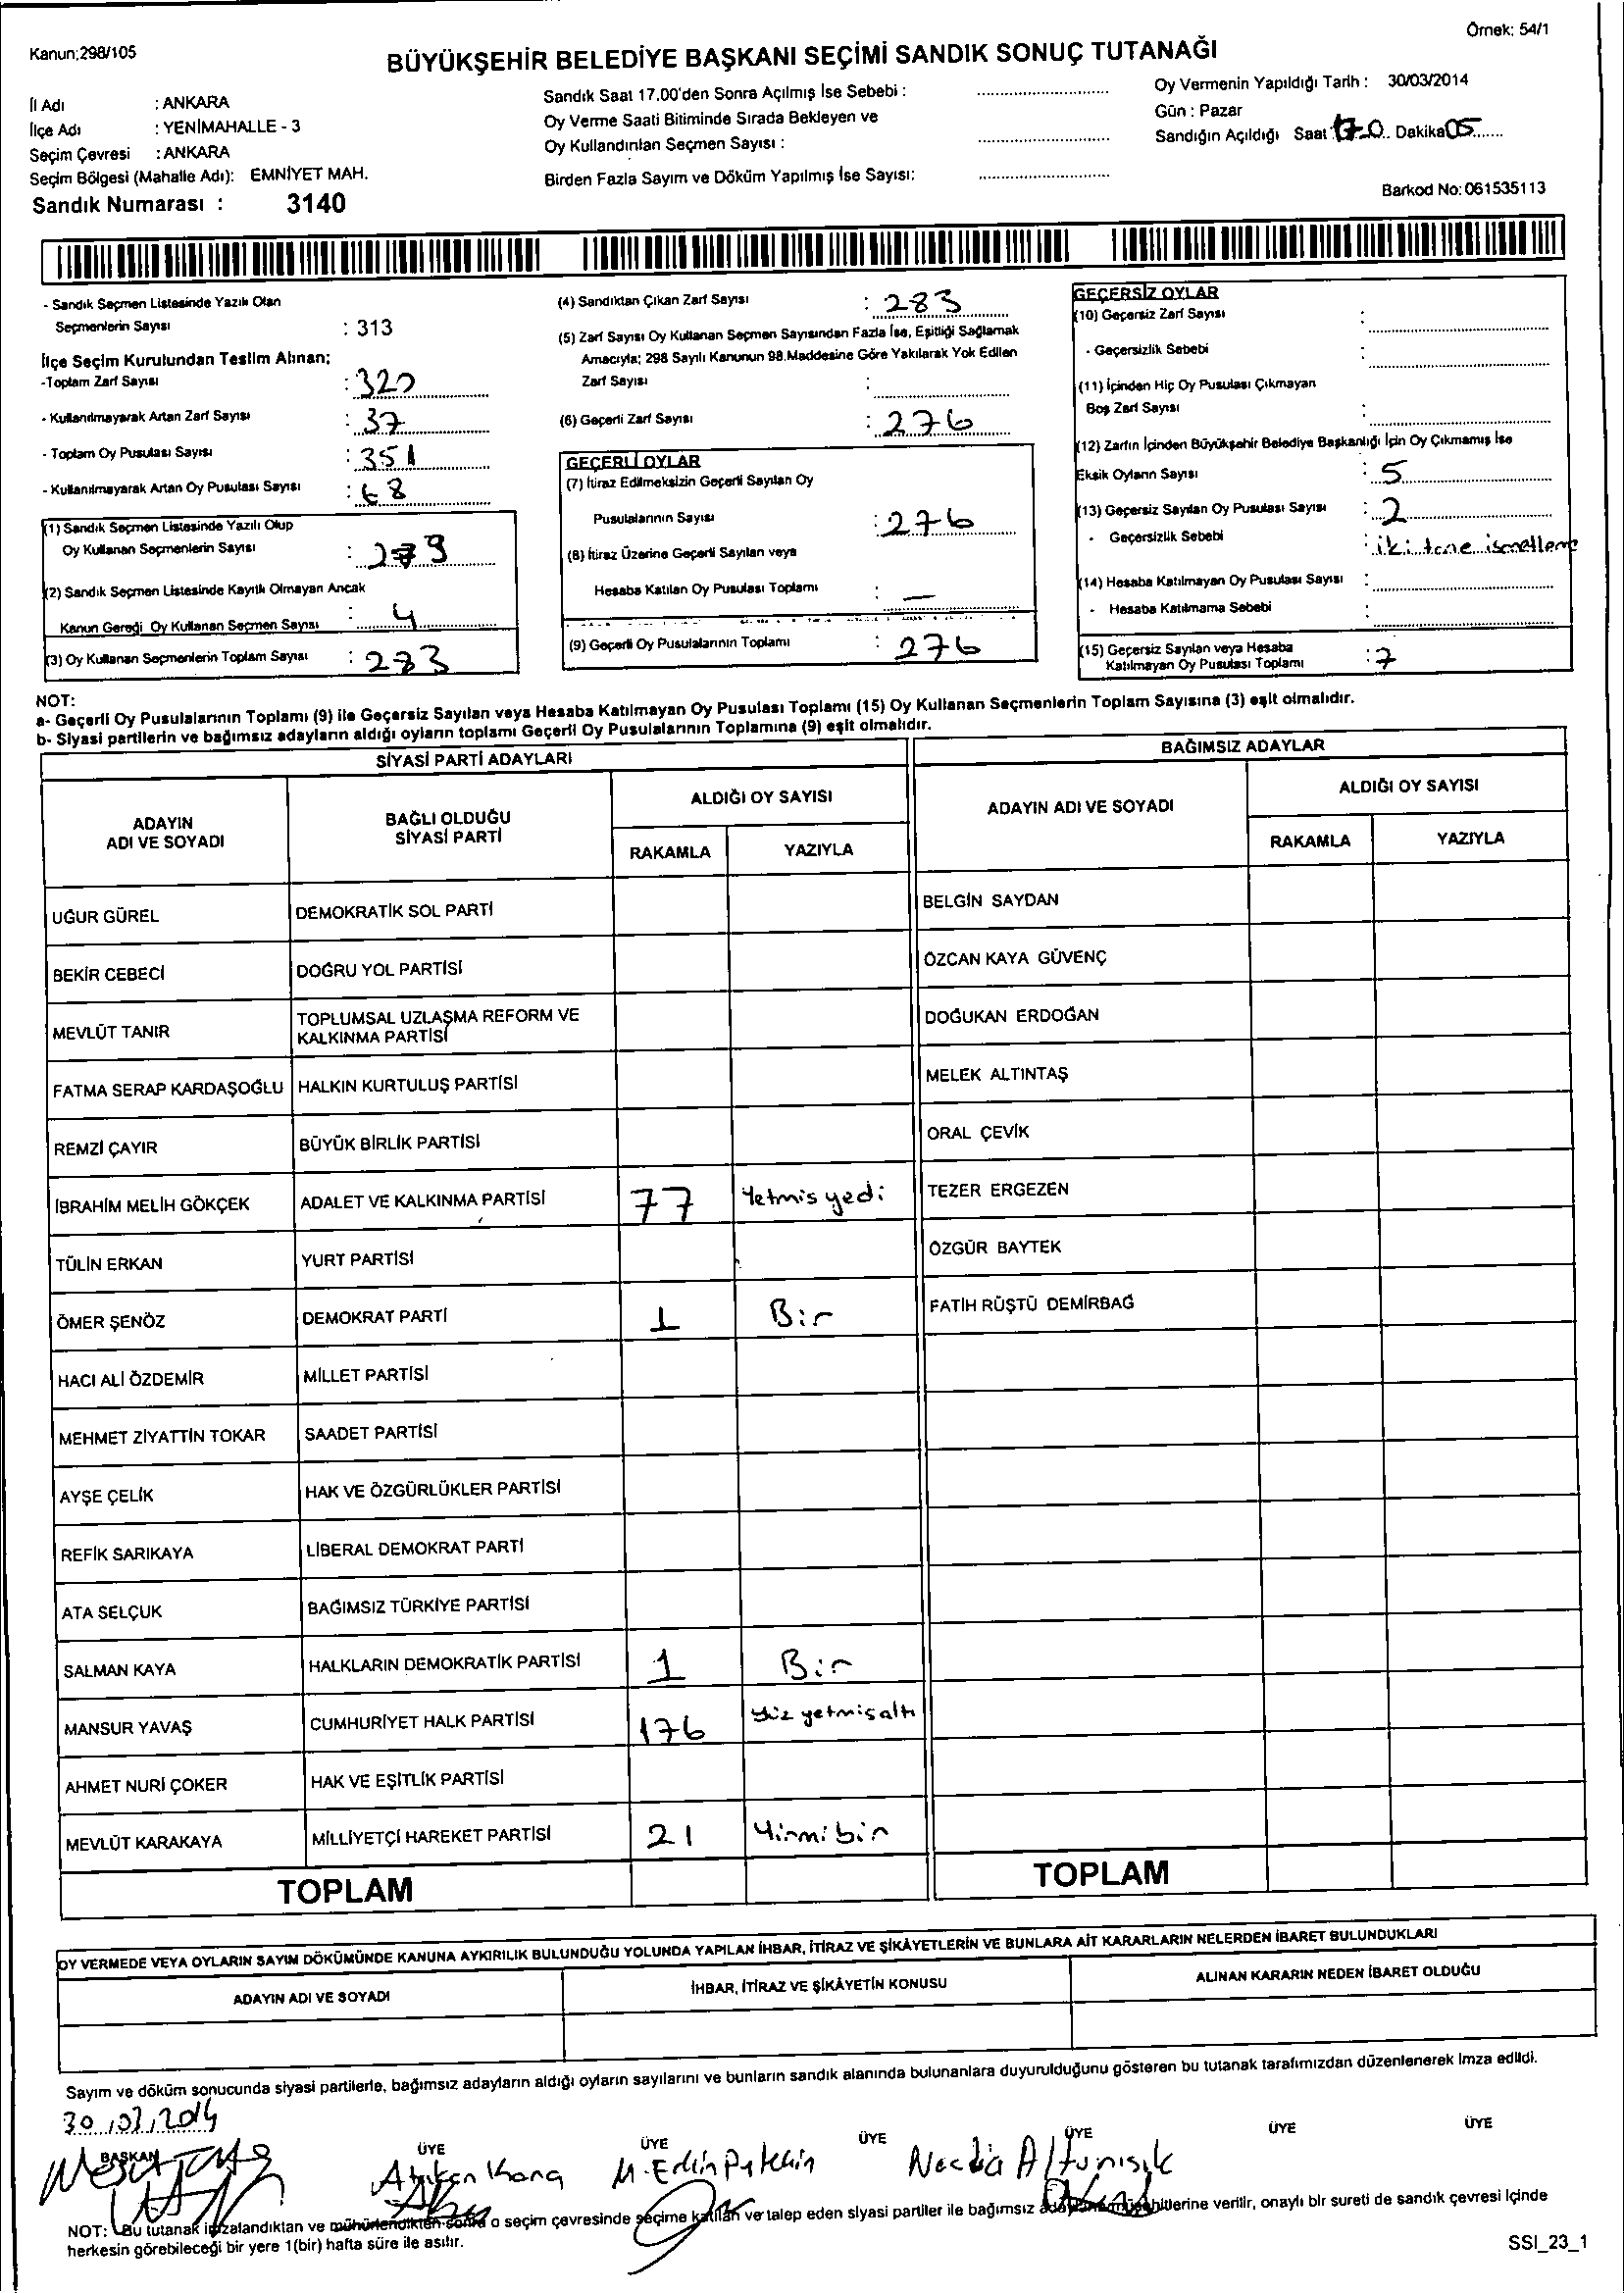 Örnek: 54/1
Kanun;298/105
BÜYÜKŞEHİR BELEDİYE BAŞKANI SEÇİMİ SANDIK SONUÇ TUTANAĞI
İl Adı : ANKARA
İlçe Adı : YENİMAHALLE - 3
Seçim Çevresi : ANKARA
Seçim Bölgesi (Mahalle Adı): EMNİYET MAH.
Sandık Numarası : 3140
Sandık Saat 17.00'den Sonra Açılmış İse Sebebi :
Oy Verme Saati Bitiminde Sırada Bekleyen ve
Oy Kullandırılan Seçmen Sayısı :
Birden Fazla Sayım ve Döküm Yapılmış İse Sayısı:
Oy Vermenin Yapıldığı Tarih : 30/03/2014
Gün : Pazar
Sandığın Açıldığı Saat : Dakika 05
Barkod No: 061535113
- Sandık Seçmen Listesinde Yazılı Olan
Seçmenlerin Sayısı : 313
İlçe Seçim Kurulundan Teslim Alınan;
-Toplam Zarf Sayısı : 320
- Kullanılmayarak Artan Zarf Sayısı : 37
- Toplam Oy Pusulası Sayısı : 351
- Kullanılmayarak Artan Oy Pusulası Sayısı : 68
(1) Sandık Seçmen Listesinde Yazılı Olup
Oy Kullanan Seçmenlerin Sayısı : 279
(2) Sandık Seçmen Listesinde Kayıtlı Olmayan Ancak
Kanun Gereği Oy Kullanan Seçmen Sayısı : 4
(3) Oy Kullanan Seçmenlerin Toplam Sayısı : 283
(4) Sandıktan Çıkan Zarf Sayısı : 283
(5) Zarf Sayısı Oy Kullanan Seçmen Sayısından Fazla İse, Eşitliği Sağlamak
Amacıyla; 298 Sayılı Kanunun 98.Maddesine Göre Yakılarak Yok Edilen
Zarf Sayısı :
(6) Geçerli Zarf Sayısı : 276
GEÇERLİ OYLAR
(7) İtiraz Edilmeksizin Geçerli Sayılan Oy
Pusulalarının Sayısı : 276
(8) İtiraz Üzerine Geçerli Sayılan veya
Hesaba Katılan Oy Pusulası Toplamı : —
(9) Geçerli Oy Pusulalarının Toplamı : 276
GEÇERSİZ OYLAR
(10) Geçersiz Zarf Sayısı :
- Geçersizlik Sebebi :
(11) İçinden Hiç Oy Pusulası Çıkmayan
Boş Zarf Sayısı :
(12) Zarfın İçinden Büyükşehir Belediye Başkanlığı İçin Oy Çıkmamış İse
Eksik Oyların Sayısı : 5
(13) Geçersiz Sayılan Oy Pusulası Sayısı : 2
- Geçersizlik Sebebi : iki tane
(14) Hesaba Katılmayan Oy Pusulası Sayısı :
- Hesaba Katılmama Sebebi :
(15) Geçersiz Sayılan veya Hesaba
Katılmayan Oy Pusulası Toplamı : 7
NOT:
a- Geçerli Oy Pusulalarının Toplamı (9) ile Geçersiz Sayılan veya Hesaba Katılmayan Oy Pusulası Toplamı (15) Oy Kullanan Seçmenlerin Toplam Sayısına (3) eşit olmalıdır.
b- Siyasi partilerin ve bağımsız adayların aldığı oyların toplamı Geçerli Oy Pusulalarının Toplamına (9) eşit olmalıdır.
SİYASİ PARTİ ADAYLARI
ADAYIN ADI VE SOYADI BAĞLI OLDUĞU SİYASİ PARTİ ALDIĞI OY SAYISI
RAKAMLA YAZIYLA
UĞUR GÜREL DEMOKRATİK SOL PARTİ
BEKİR CEBECİ DOĞRU YOL PARTİSİ
MEVLÜT TANIR TOPLUMSAL UZLAŞMA REFORM VE KALKINMA PARTİSİ
FATMA SERAP KARDAŞOĞLU HALKIN KURTULUŞ PARTİSİ
REMZİ ÇAYIR BÜYÜK BİRLİK PARTİSİ
İBRAHİM MELİH GÖKÇEK ADALET VE KALKINMA PARTİSİ 77 Yetmis yedi
TÜLİN ERKAN YURT PARTİSİ
ÖMER ŞENÖZ DEMOKRAT PARTİ 1 Bir
HACI ALİ ÖZDEMİR MİLLET PARTİSİ
MEHMET ZİYATTİN TOKAR SAADET PARTİSİ
AYŞE ÇELİK HAK VE ÖZGÜRLÜKLER PARTİSİ
REFİK SARIKAYA LİBERAL DEMOKRAT PARTİ
ATA SELÇUK BAĞIMSIZ TÜRKİYE PARTİSİ
SALMAN KAYA HALKLARIN DEMOKRATİK PARTİSİ 1 Bir
MANSUR YAVAŞ CUMHURİYET HALK PARTİSİ 176 Yüz yetmişaltı
AHMET NURİ ÇOKER HAK VE EŞİTLİK PARTİSİ
MEVLÜT KARAKAYA MİLLİYETÇİ HAREKET PARTİSİ 21 Yirmibir
TOPLAM
BAĞIMSIZ ADAYLAR
ADAYIN ADI VE SOYADI ALDIĞI OY SAYISI
RAKAMLA YAZIYLA
BELGİN SAYDAN
ÖZCAN KAYA GÜVENÇ
DOĞUKAN ERDOĞAN
MELEK ALTINTAŞ
ORAL ÇEVİK
TEZER ERGEZEN
ÖZGÜR BAYTEK
FATİH RÜŞTÜ DEMİRBAĞ
TOPLAM
OY VERMEDE VEYA OYLARIN SAYIM DÖKÜMÜNDE KANUNA AYKIRILIK BULUNDUĞU YOLUNDA YAPILAN İHBAR, İTİRAZ VE ŞİKÂYETLERİN VE BUNLARA AİT KARARLARIN NELERDEN İBARET BULUNDUKLARI
ADAYIN ADI VE SOYADI İHBAR, İTİRAZ VE ŞİKÂYETİN KONUSU ALINAN KARARIN NEDEN İBARET OLDUĞU
Sayım ve döküm sonucunda siyasi partilerle, bağımsız adayların aldığı oyların sayılarını ve bunların sandık alanında bulunanlara duyurulduğunu gösteren bu tutanak tarafımızdan düzenlenerek imza edildi.
30/03/2014
BAŞKAN ÜYE ÜYE ÜYE ÜYE ÜYE ÜYE
NOT: Bu tutanak imzalandıktan ve mühürlendikten sonra o seçim çevresinde seçime katılan ve talep eden siyasi partiler ile bağımsız adayların müşahitlerine verilir, onaylı bir sureti de sandık çevresi içinde
herkesin görebileceği bir yere 1(bir) hafta süre ile asılır.
SSI_23_1